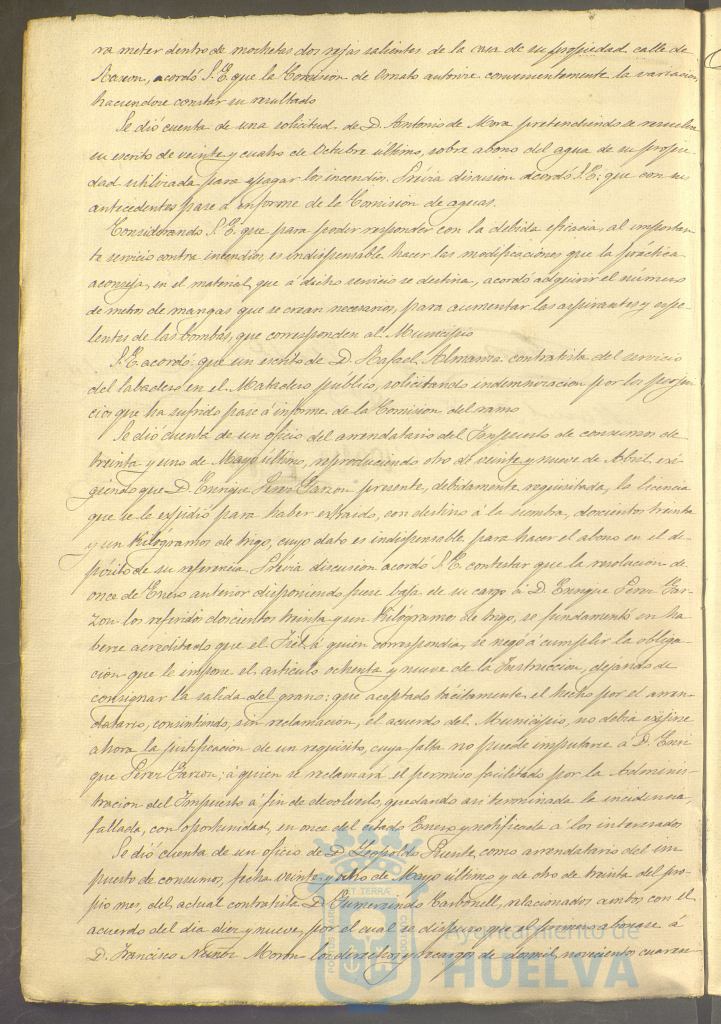 ra meter dentro de mochetas dos rejas salientes de la casa de su propiedad calle de
Rascon, acordó S. E. que la Comision de Ornato autorice convenientemente la variacion
haciendose constar su resultado
Se dió cuenta de una solicitud de D. Antonio de Mora pretendiendo se resuelva
su escrito de veinte y cuatro de Octubre último, sobre abono del agua de su propie-
dad utilizada para apagar los incendios. Prévia discusion acordó S. E. que con sus
antecedentes pase á informe de la Comision de aguas.
Considerando S. E. que para poder responder con la debida eficacia, al importan-
te servicio contra incendios, es indispensable hacer las modificaciones que la práctica
aconseja, en el material que á dicho servicio se destina, acordó adquirir el número
de metros de mangas que se crean necesarios, para aumentar las aspirantes y espe-
lentes de las bombas, que corresponden al Municipio
S. E. acordó que un escrito de D. Rafael Almansa contratista del servicio
del labadero en el Matadero público, solicitando indemnizacion por los perjui-
cios que ha sufrido pase á informe de la Comision del ramo
Se dió cuenta de un oficio del arrendatario del Impuesto de consumos de
treinta y uno de Mayo último, reproduciendo otro de veinte y nueve de Abril exi-
giendo que D. Enrique Perez Garzon presente, debidamente requisitada, la licencia
que se le expidió para haber extraido, con destino á la siembra, doscientos treinta
y un Kilógramos de trigo, cuyo dato es indispensable para hacer el abono en el de-
pósito de su referencia. Prévia discusion acordó S. E. contestar que la resolucion de
once de Enero anterior disponiendo fuese baja de su cargo á D. Enrique Perez Gar-
zon los referidos doscientos treinta y un Kilógramos de trigo, se fundamentó en ha-
berse acreditado que el Fiel, á quien correspondia, se negó á cumplir la obliga-
cion que le impone el artículo ochenta y nueve de la Instruccion, dejando de
consignar la salida del grano: que aceptado tácitamente el hecho por el arren-
datario, consintiendo, sin reclamacion, el acuerdo del Municipio, no debia exijirse
ahora la justificacion de un requisito, cuya falta no puede imputarse á D. Enri-
que Perez Garzon; á quien se reclamará el permiso facilitado por la Adminis-
tracion del Impuesto á fin de devolverlo, quedando asi terminada la incidencia,
fallada, con oportunidad, en once del citado Enero y notificada á los interesados
Se dió cuenta de un oficio de D. Leopoldo Puente, como arrendatario del im-
puesto de consumos, fecha veinte y ocho de Mayo último y de otro de treinta del pro-
pio mes, del actual contratista D. Gumersindo Carbonell, relacionados ambos con el
acuerdo del dia diez y nueve, por el cual se dispuso que el primero abonase á
D. Francisco Nuñez Moron los derechos y recargos de dos mil novecientos cuaren-
Ayuntamiento de
HUELVA